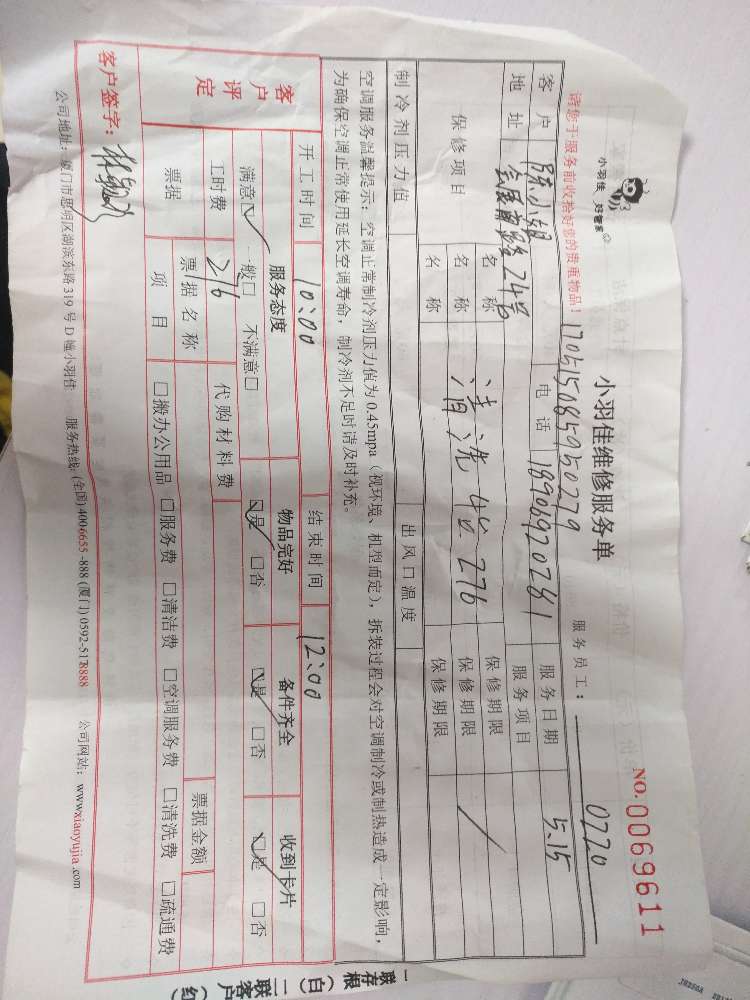 小羽佳 好管家
小羽佳维修服务单
NO.0069611
请您于服务前收拾好您的贵重物品!
170515085950279
服务员工: 0220
客户 陈小姐 电话 18906920281 服务日期 5.15
地址 会展南路24号 服务项目
保修项目 名称 保修期限
名称 清洗 4台 276 保修期限 /
名称 保修期限
制冷剂压力值 出风口温度
空调服务温馨提示:空调正常制冷剂压力值为 0.45mpa(视环境、机型而定),拆装过程会对空调制冷或制热造成一定影响,
为确保空调正常使用延长空调寿命,制冷剂不足时请及时补充。
开工时间 10:00 结束时间 12:00
客户评定 服务态度 物品完好 备件齐全 收到卡片
满意☑ 一般□ 不满意□ ☑是 □否 ☑是 □否 ☑是 □否
工时费 276 代购材料费
票据 票据名称 票据金额
项目 □搬办公用品 □服务费 □清洁费 □空调服务费 □清洗费 □疏通费
客户签字:
公司地址:厦门市思明区湖滨东路 319 号 D 幢小羽佳 服务热线:(全国) 4006655-888 (厦门) 0592-5178888 公司网站:www.xiaoyujia.com
一联存根(白) 二联客户(红)